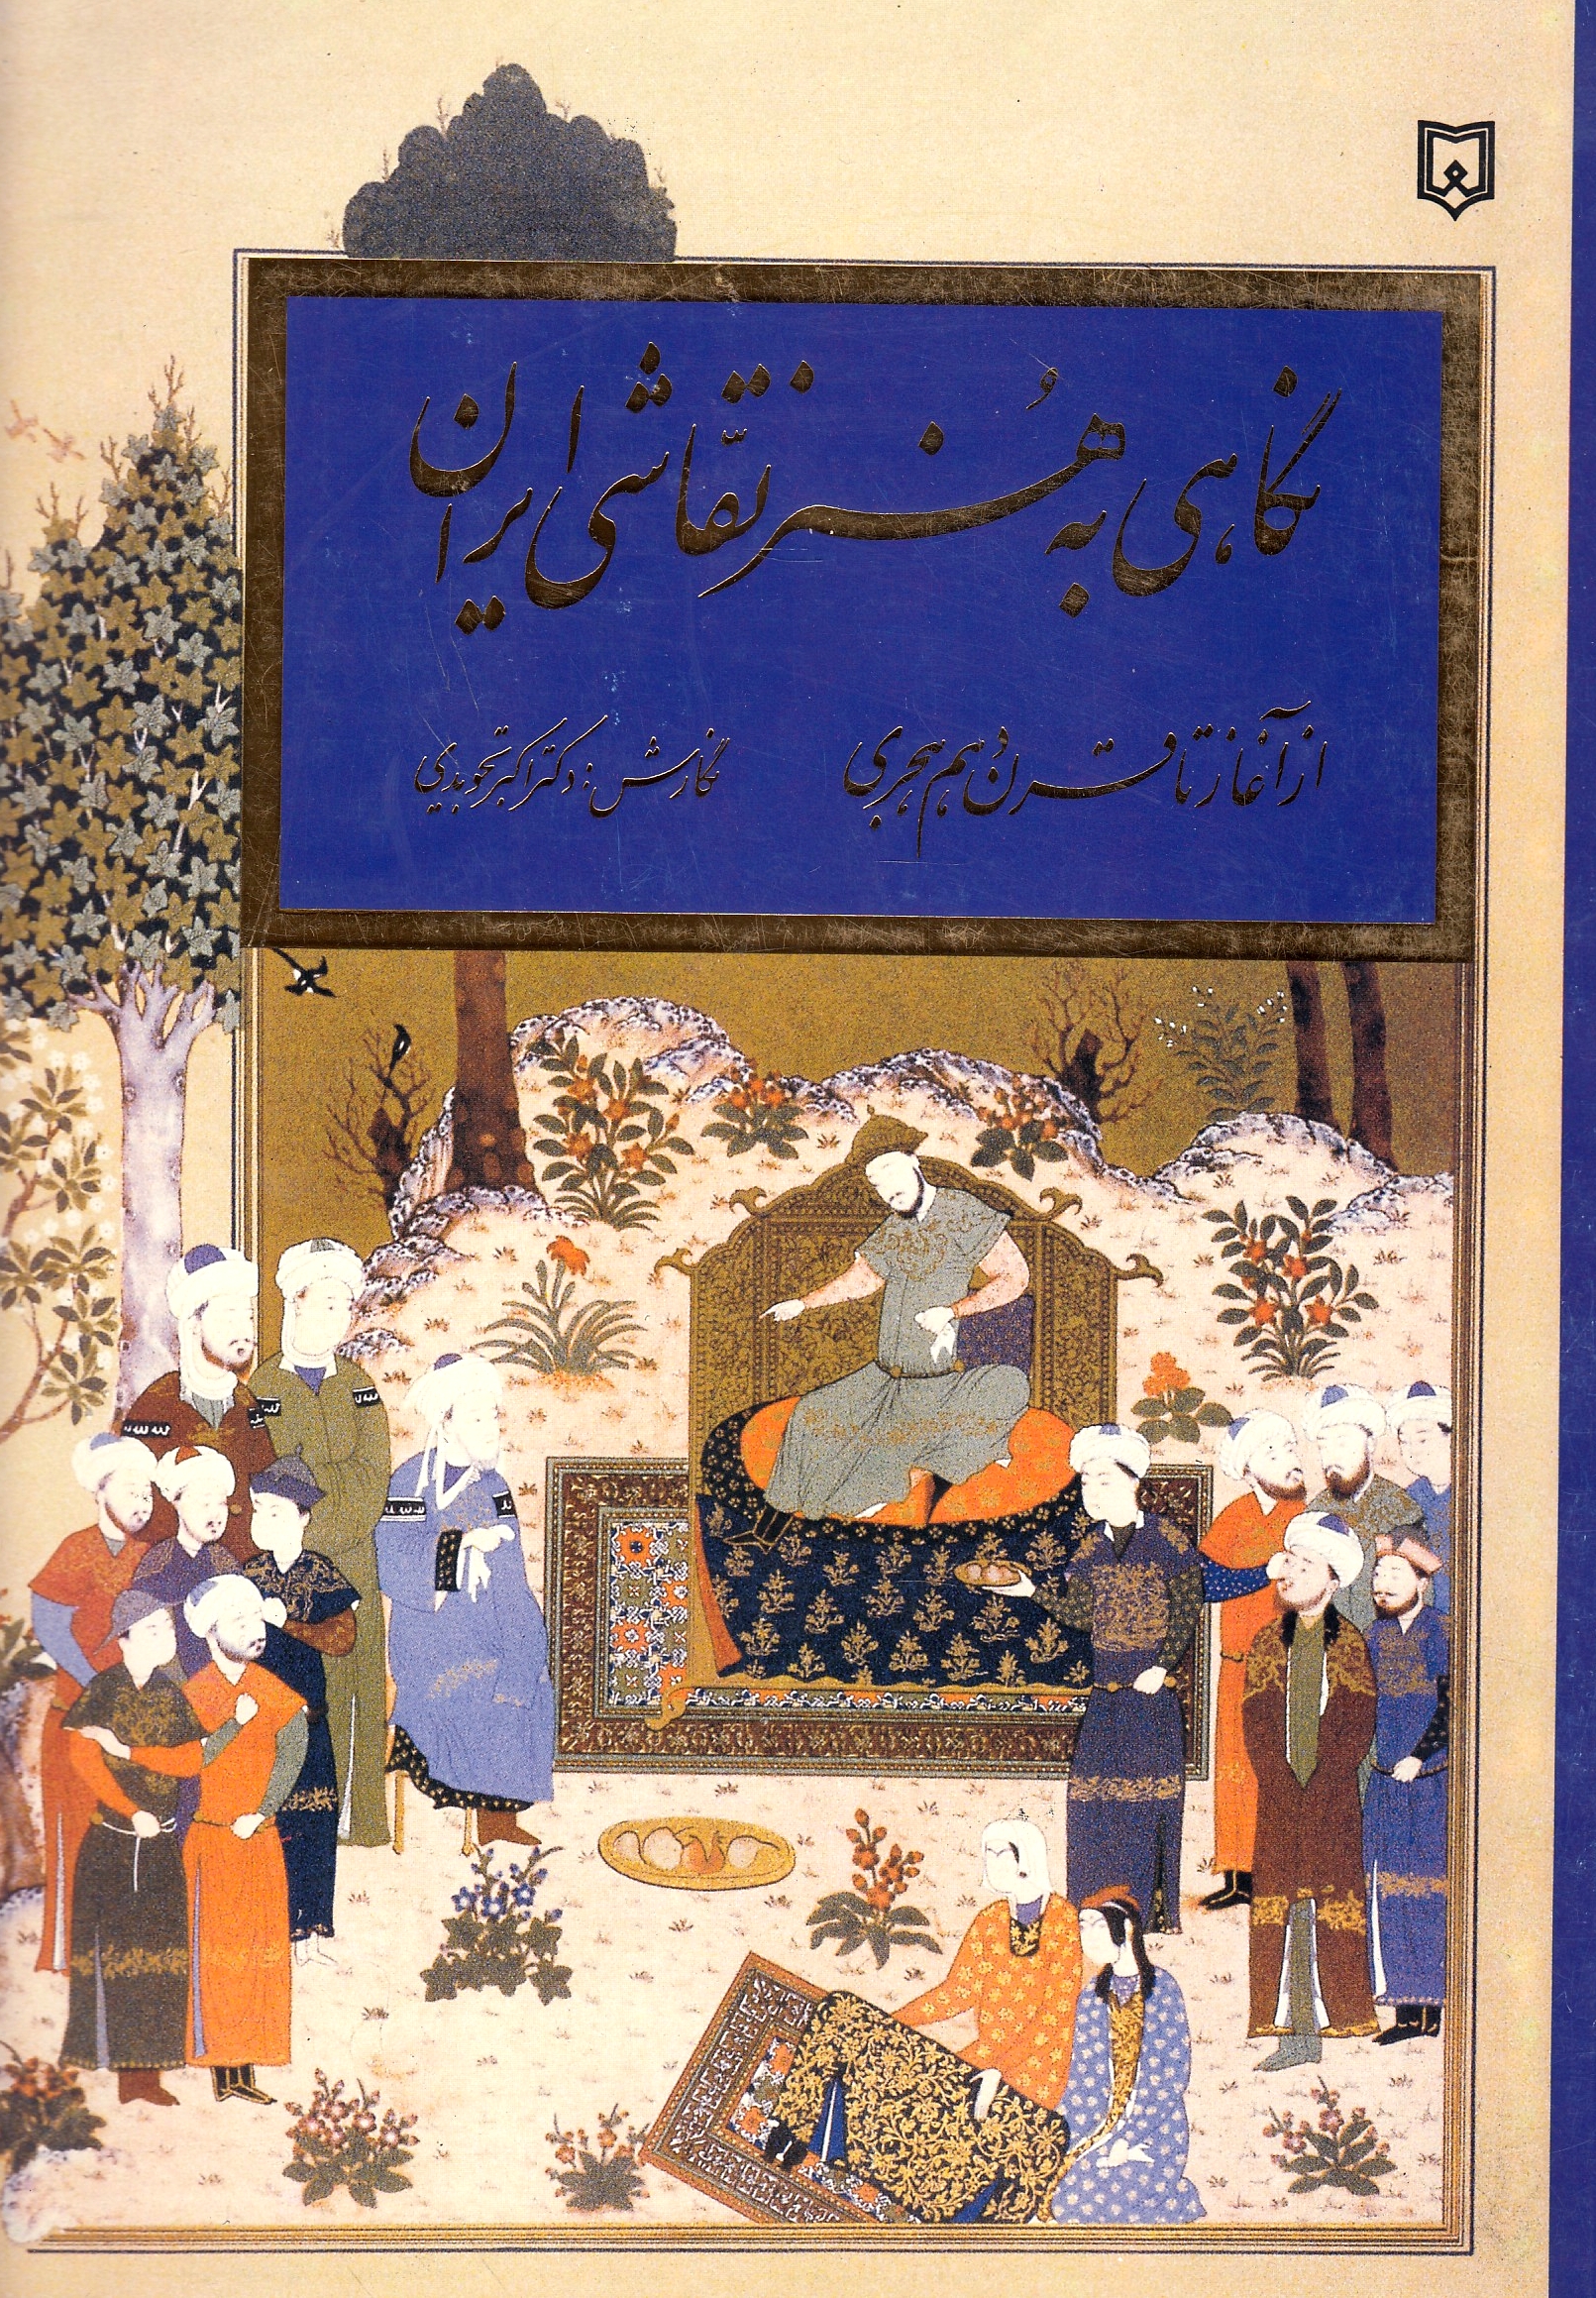 نگاهی به هُنر نقّاشی ایران
از آغاز تا قرن دهم هجری
نگارش: دکتر اکبر تجویدی